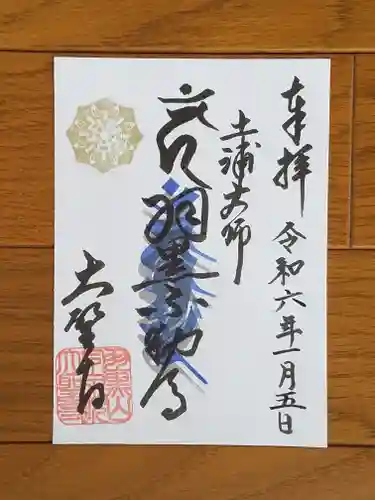 奉拝
令和六年一月五日
土浦大師
羽黒不動尊
大聖寺